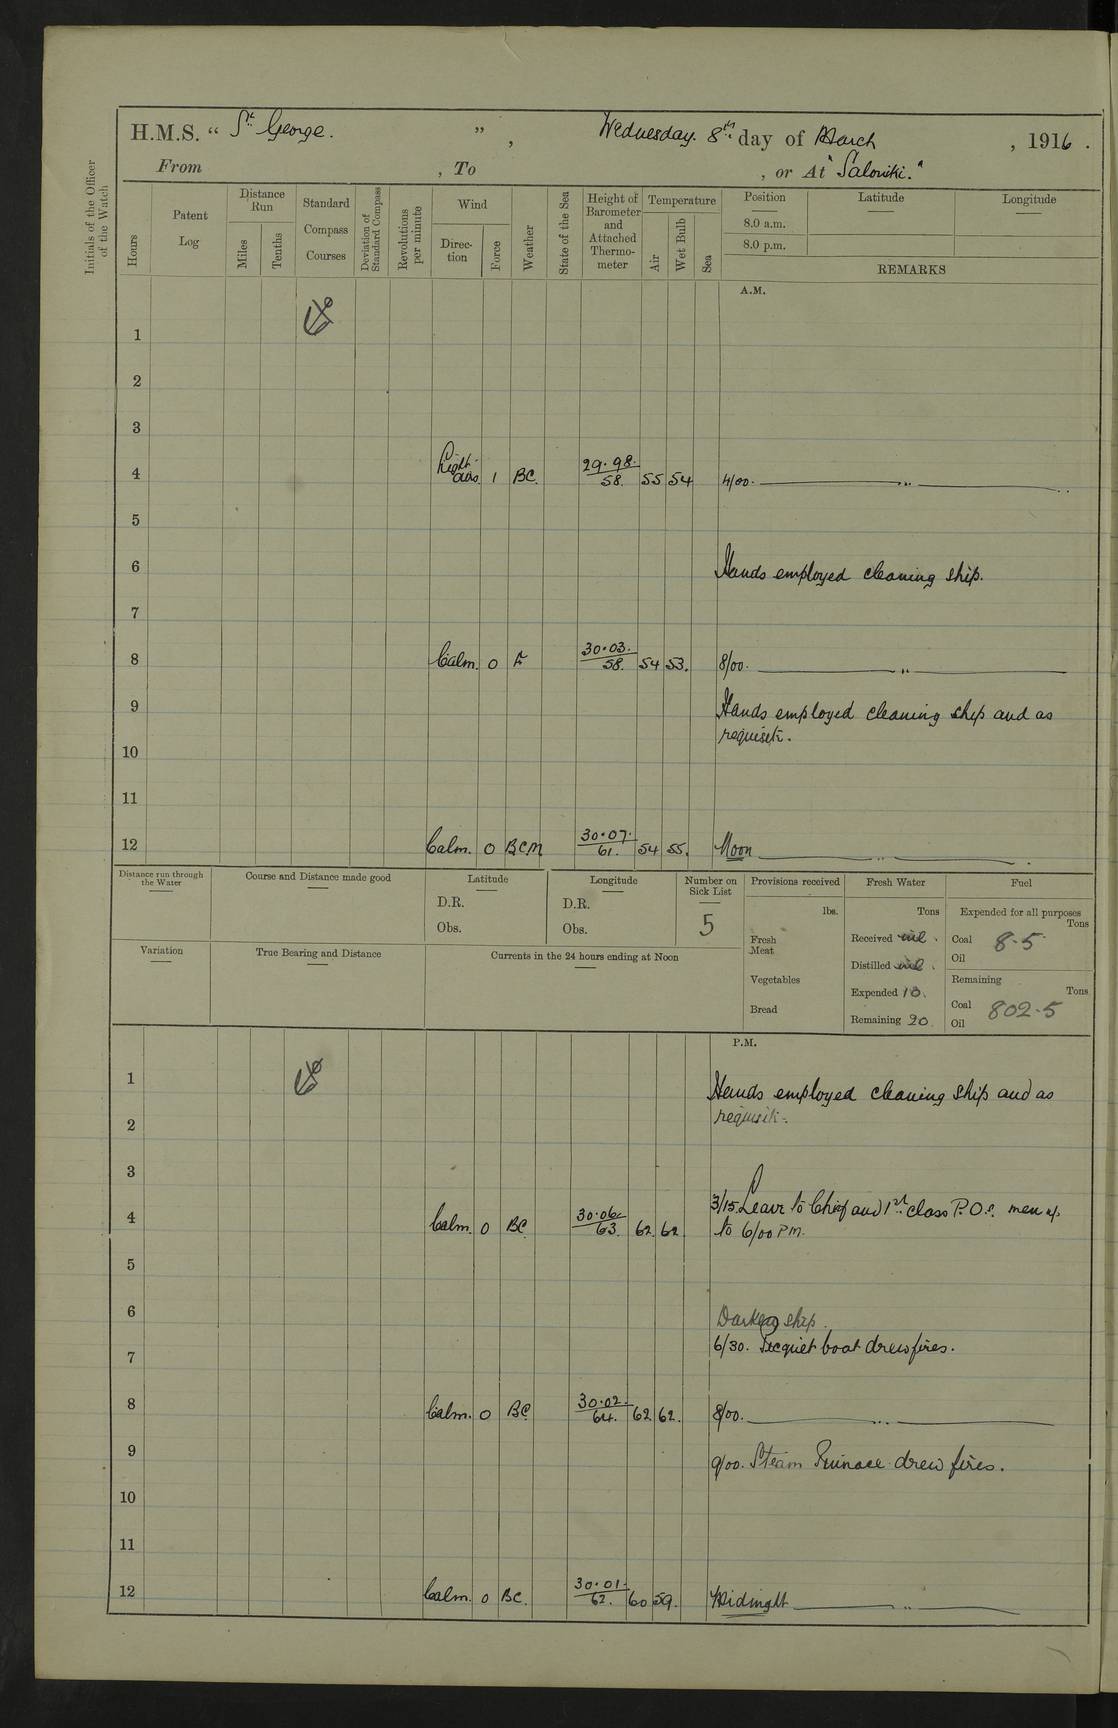 H.M.S. “ St George. ” , Wednesday. 8th day of March , 1916 .
From , To , or At "Saloniki."
Initials of the Officer of the Watch
Hours
Patent Log
Distance Run
Miles
Tenths
Standard Compass Courses
Deviation of Standard Compass
Revolutions per minute
Wind
Direc-tion
Force
Weather
State of the Sea
Height of Barometer and Attached Thermo-meter
Temperature
Air
Wet Bulb
Sea
Position Latitude Longitude
8.0 a.m.
8.0 p.m.
REMARKS
A.M.
1
2
3
4 Light airs. 1 BC. 29.98. 58. 55 54 4/00. ———— „ ————
5
6 Hands employed cleaning ship.
7
8 Calm. 0 F 30.03. 58. 54 53. 8/00. ———— „ ————
9 Hands employed cleaning ship and as
requisite.
10
11
12 Calm. 0 BCM 30.07. 61. 54 55. Noon ———— „ ————
Distance run through the Water
Course and Distance made good
Latitude
D.R.
Obs.
Longitude
D.R.
Obs.
Number on Sick List
5
Provisions received
lbs.
Fresh Meat
Vegetables
Bread
Fresh Water
Tons
Received nil .
Distilled nil .
Expended 10.
Remaining 20
Fuel
Expended for all purposes
Tons
Coal 8.5
Oil
Remaining
Tons
Coal 802.5
Oil
Variation
True Bearing and Distance
Currents in the 24 hours ending at Noon
P.M.
1 Hands employed cleaning ship and as
2 requisite.
3
4 Calm. 0 BC 30.06. 63. 62. 62. 3/15 Leave to Chief and 1st class P.O.s. men
to 6/00 PM.
5
6 Darken ship.
7 6/30. Picquet boat drew fires.
8 Calm. 0 BC 30.02. 64. 62 62. 8/00. ———— „ ————
9 9/00. Steam Pinnace drew fires.
10
11
12 Calm. 0 BC. 30.01. 62. 60 59. Midnight ———— „ ————